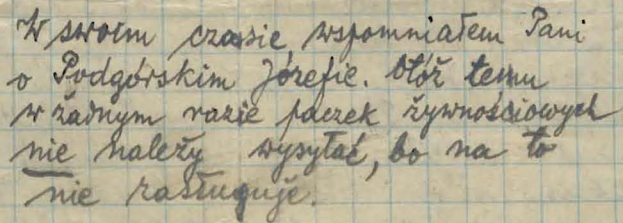 W swoim czasie wspomniałem Pani
o Podgórskim Józefie. Otóż temu
w żadnym razie paczek żywnościowych
nie należy wysyłać, bo na to
nie zasługuje.